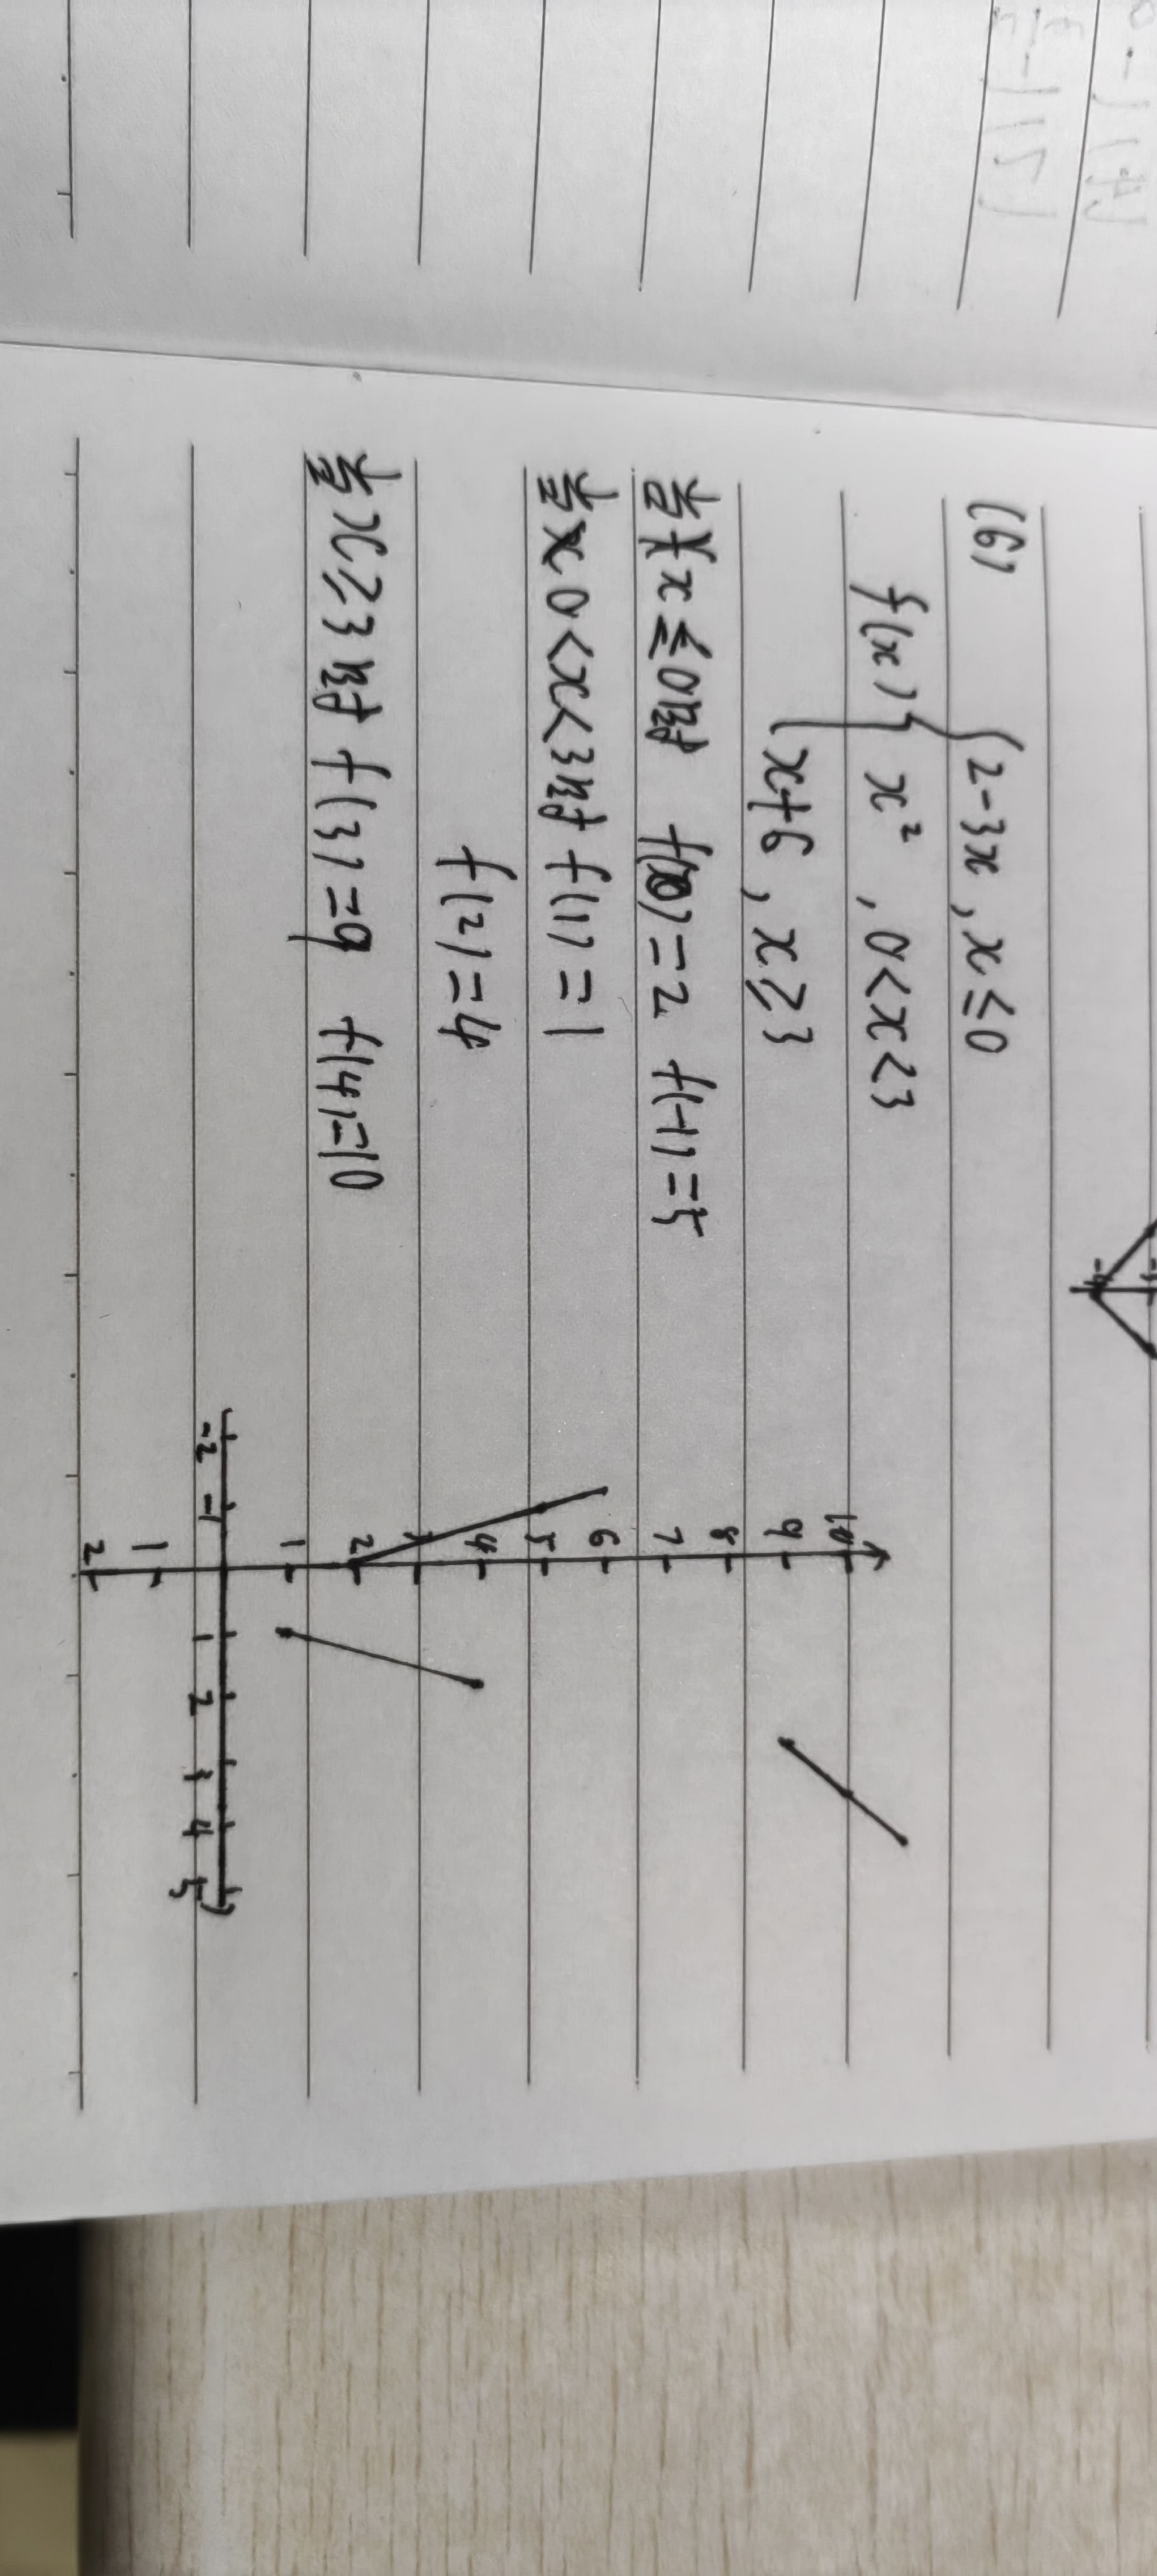 (6)
f(x) { 2-3x , x≤0
x² , 0<x<3
x+6 , x≥3
当x≤0时 f(0)=2 f(-1)=5
当x 0<x<3时 f(1)=1
f(2)=4
当x≥3时 f(3)=9 f(4)=10
10
9
8
7
6
5
4
3
2
1
-2 -1 1 2 3 4 5
1
2
-4